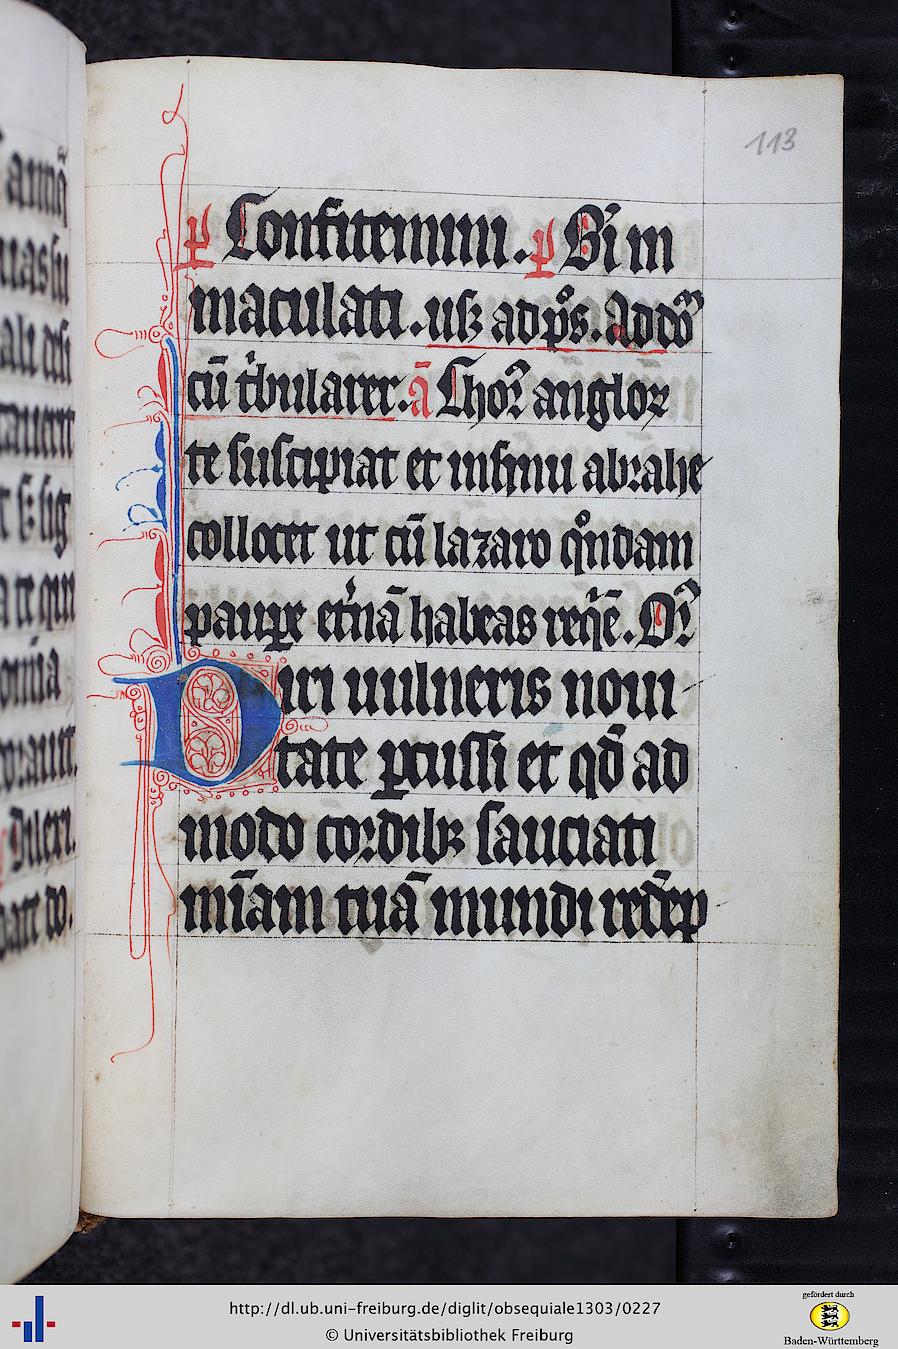 113
p̄ Confitemini . p̄ B̄ti in
maculati . usꝫ ad ps̊. Ad dō͞m
cū t͛bularer . ā Choꝝ angloꝝ
te suscipiat et in sinu abrahe
collocet ut cū lazaro qͦndam
paupe et͛nā habeas req͛ē . Or̄
Diri uulneris noui
tate ꝑcussi et qd̄ ad
modo cordibꝫ sauciati
mīam tuā mundi redēp
http://dl.ub.uni-freiburg.de/diglit/obsequiale1303/0227
© Universitätsbibliothek Freiburg
gefördert durch
Baden-Württemberg